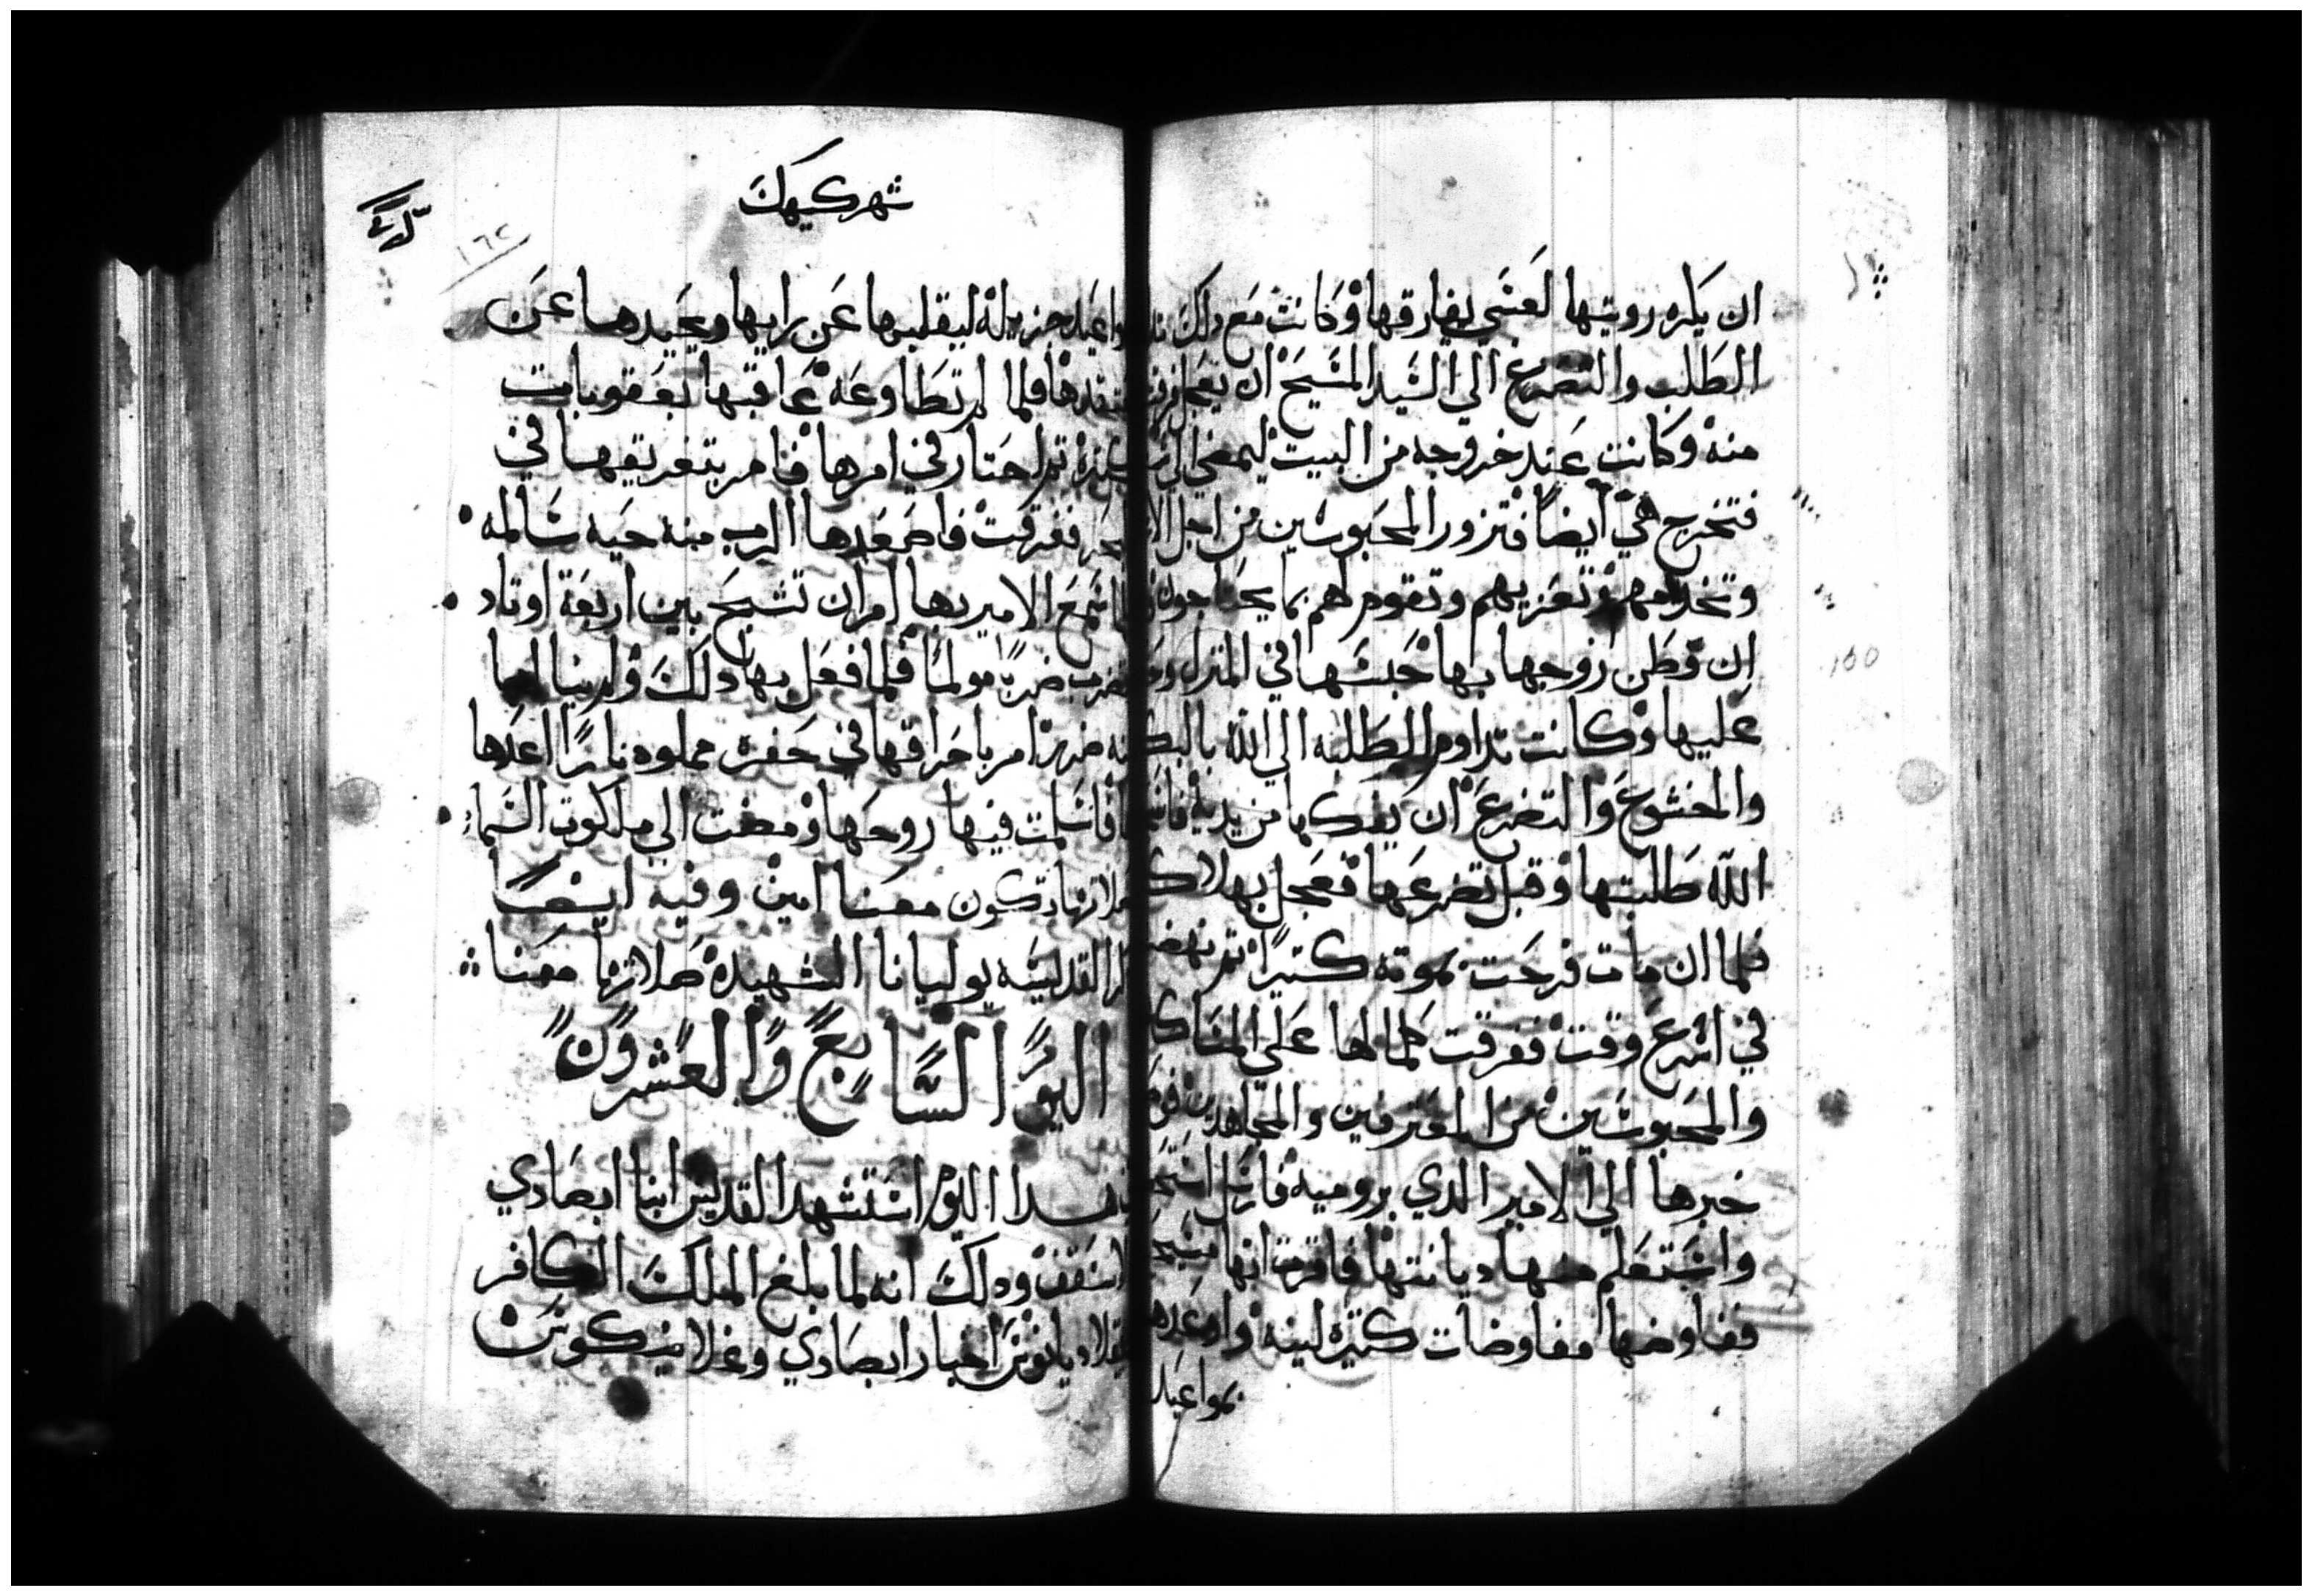 ان يكره رويتها لعسي يفارقها وكانت مع دلك
الطلب والتضرع الي السيد المسيح ان يعجل
منه وكانت عند خروجه من البيت ليمضي الي
فتخرج هي ايضا فتزور المحبوسين من اجل
وتخدمهم وتعزيهم وتقوم لهم بما يحتاجون
ان فطن زوجها بها حبسها في المنزل
عليها وكانت تداوم الطلبه الي الله
والخشوع والتضرع ان يفكها من يديه
الله طلبتها وقبل تضرعها فعجل بهلاكـ
فلما ان مات فرحت بموته كتيرا تم نهضـ
في اسرع وقت ففرقت كلمالها علي
والمحبوسين من المعترفين والمجاهدين
خبرها الي الامير الدي بروميه فارسل
واستعلم منها ديانتها فاقرت انها
ففاوضها مفاوضات كتيره لينه
بمواعيد
شهر كيهك
١٦٢
بمواعيد جزيله ليقلبها عن رايها ويحيدها عن
فلما لم تطاوعه عاقبها بعقوبات
تم احتار في امرها فامر بتغريقها في
فغرقت فاصعدها الرب منه حيه سالمه
سمع الامير بها امر ان تشبح بين اربعة اوتاد
ضربا مولما فلما فعل بها دلك ولم ينالها
ضرر امر باحراقها في حفره مملوه نارا اعدها
فاسلمت فيها روحها ومضت الي ملكوت السماء
صلاتها تكون معنا امين وفيه ايضا
القديسه يوليانا الشهيده صلاتها معنا
اليوم السابع والعشرون
هدا اليوم استشهد القديس انبا ابصادي
الاسقف ودلك انه لما بلغ الملك الكافر
دقلاديانوس اخبار ابصادي وغلامنيكوس
١٥٥